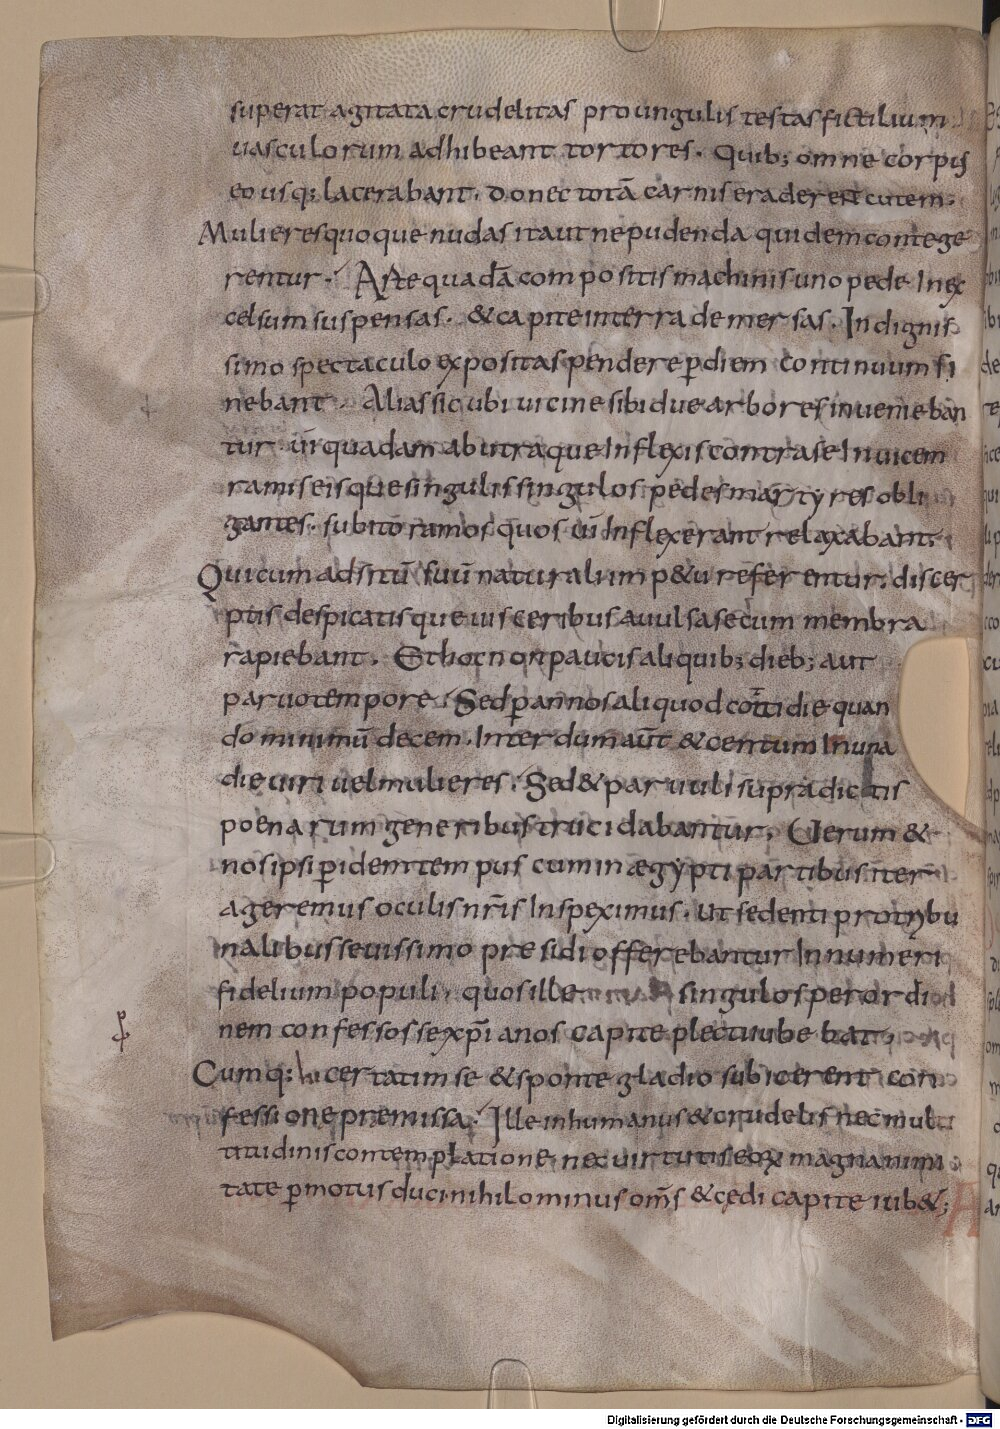 superat agitata crudelitas pro ungulis testas fictilium
uasculorum adhibeant tortores. Quib; omne corpus
eo usq; lacerabant. donec totā carnis eraderent cutem.
Mulieres quoque nudas ita ut ne pudenda quidem contege
rentur. Arte quadā compositis machinis uno pede In ex
celsum suspensas. & capite in terra demersas. Indignis
simo spectaculo expositas pendere p diem continuum si
nebant. Alias sicubi uicine sibi due arbores inuenieban
tur. uirgquadam ab utraque Inflexis contra se Inuicem
ramis eisque singulis singulos pedes martyres obli
gantes. subito ramos quos ui Inflexerant relaxabant.
Qui cum ad sitū suū naturali imp&u referentur. discer
ptis despicatisque uisceribus auulsa secum membra
rapiebant. Et hoc non paucis aliquib; dieb; aut
paruo tempore. Sed p annos aliquod cottidie quan
do minimū decem. Interdum aūt & centum In una
die uiri uel mulieres. Sed & paruuli supra dictis
poenarum generibus trucidabantur. Uerum &
nos ipsi p idem tempus cum in ægypti partibus iter
ageremus oculis nr̄is Inspeximus. Ut sedenti pro trybu
nalibus seuissimo presidi offerebantur Innumeri
fidelium populi. quos ille singulos per ordi
nem confessos se xp̄ianos capite plecti iubebat.
Cumq; hi certatim se & sponte gladio subicerent con
fessione premissa. Ille inhumanus & crudelis nec mul
titudinis contemplatione. nec uirtutis eoꝝ magnanimi
tate pmotus duci nihilominus om̄s & cedi capite iub&;
Digitalisierung gefördert durch die Deutsche Forschungsgemeinschaft - DFG